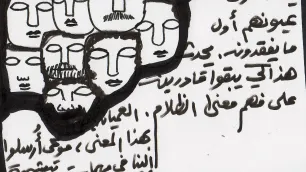 عيونهم أول
ما يفقدون. يحدث
هذا كي يبقوا قادرين
على فهم معنى الظلام. العميان
بهذا المعنى، موتى أُرسلوا
إلينا في